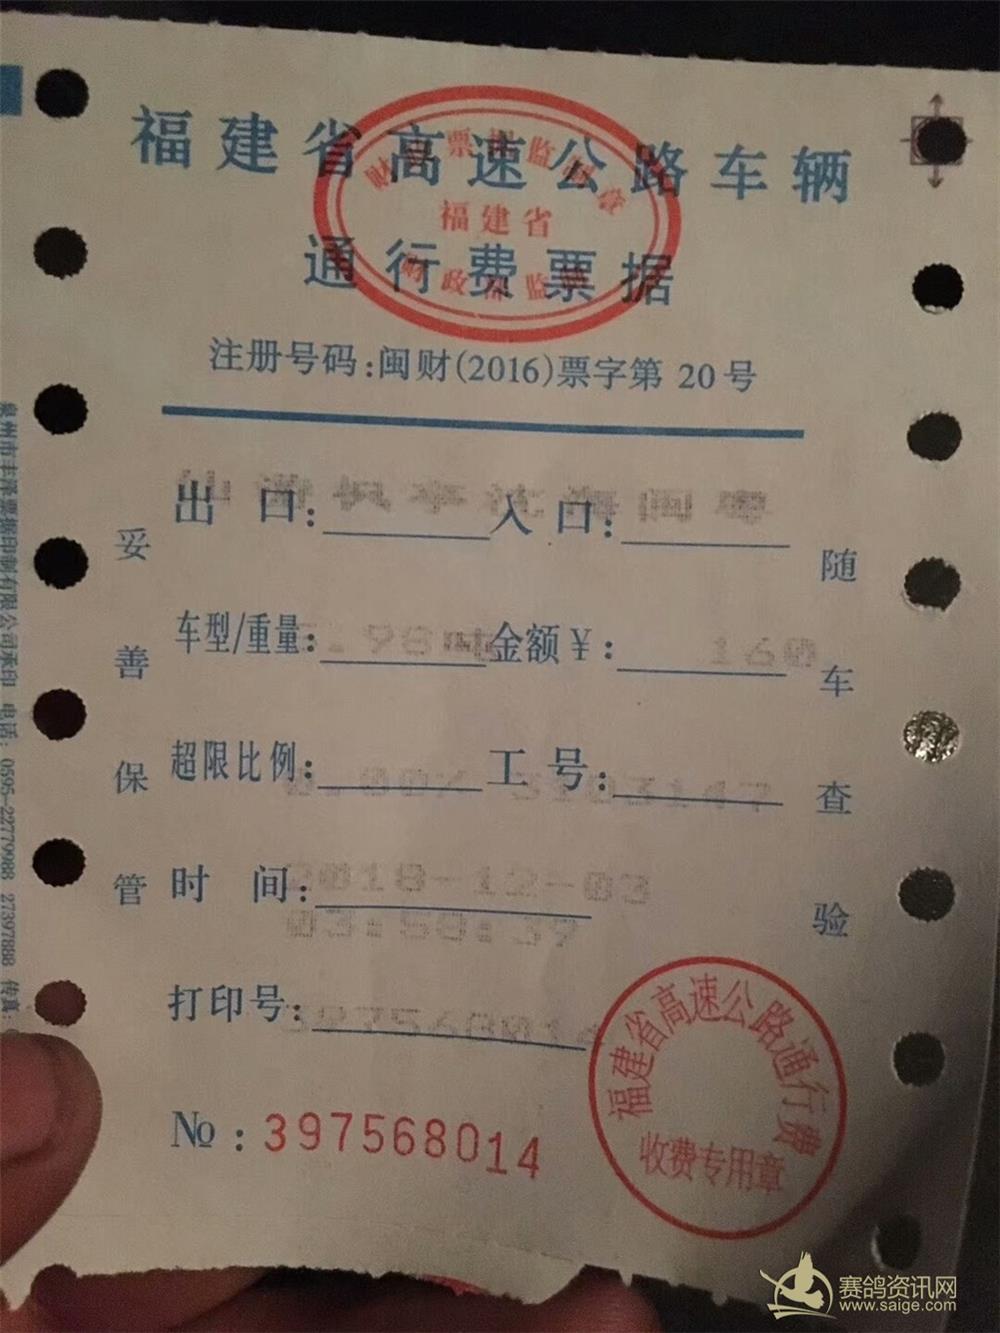 福建省高速公路车辆
通行费票据
福建省
注册号码:闽财(2016)票字第 20号
出 口: 入 口:
车型/重量: .98吨 金额¥: 160
超限比例: 0.00% 工 号: 3103147
时 间: 2018-12-03
03:58:39
打印号: 397568014
№: 397568014
福建省高速公路通行费
收费专用章
妥善保管
随车查验
泉州市丰泽票据印制有限公司承印 电话: 0595-22779988 27397888 传真:
赛鸽资讯网
www.saige.com